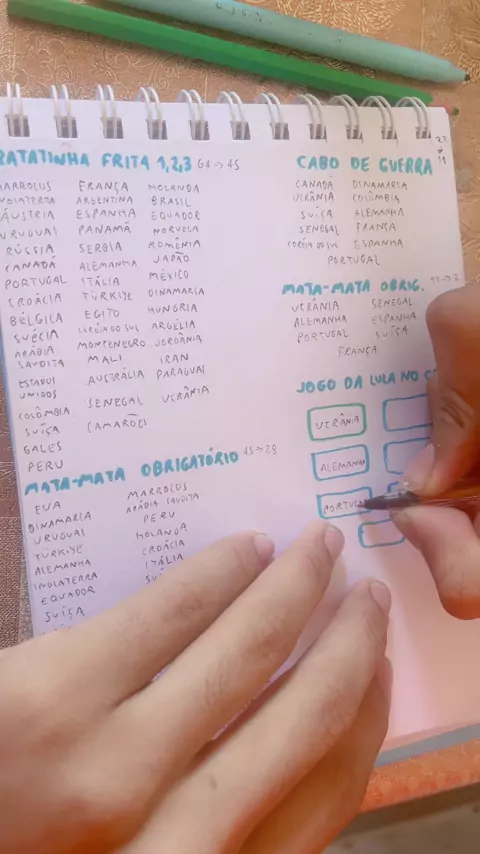 BATATINHA FRITA 1,2,3 64→45
MARROCOS FRANÇA HOLANDA
INGLATERRA ARGENTINA BRASIL
ÁUSTRIA ESPANHA EQUADOR
URUGUAI PANAMÁ NORUEGA
RÚSSIA SERBIA ROMÊNIA
CANADÁ ALEMANHA JAPÃO
PORTUGAL ITÁLIA MÉXICO
CROÁCIA TÜRKIYE DINAMARCA
BÉLGICA EGITO HUNGRIA
SUÉCIA CORÉIA DO SUL ARGÉLIA
ARÁBIA SAUDITA MONTENEGRO JORDANIA
MALI IRAN
ESTADOS UNIDOS AUSTRÁLIA PARAGUAI
COLÔMBIA SENEGAL UCRÂNIA
SUÍÇA CAMARÕES
GALES
PERU
MATA-MATA OBRIGATÓRIO 45→28
EUA MARROCOS
DINAMARCA ARÁBIA SAUDITA
URUGUAI PERU
TÜRKIYE HOLANDA
ALEMANHA CROÁCIA
INGLATERRA ITÁLIA
EQUADOR
SUÍÇA
CABO DE GUERRA
CANADÁ DINAMARCA
UCRÂNIA COLÔMBIA
SUÍÇA ALEMANHA
SENEGAL FRANÇA
CORÉIA DO SUL ESPANHA
PORTUGAL
MATA-MATA OBRIG.
UCRÂNIA SENEGAL
ALEMANHA ESPANHA
PORTUGAL SUÍÇA
FRANÇA
JOGO DA LULA NO
UCRÂNIA
ALEMANHA
PORTUGA